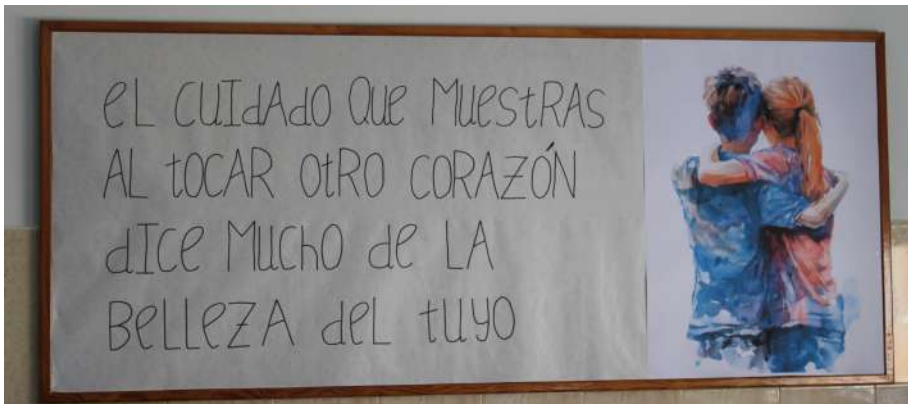 eL CUIdAdo Que MuestRAS
AL tOCAR OtRO CORAZÓN
dICe MUChO de LA
BeLLeZA deL tuyo